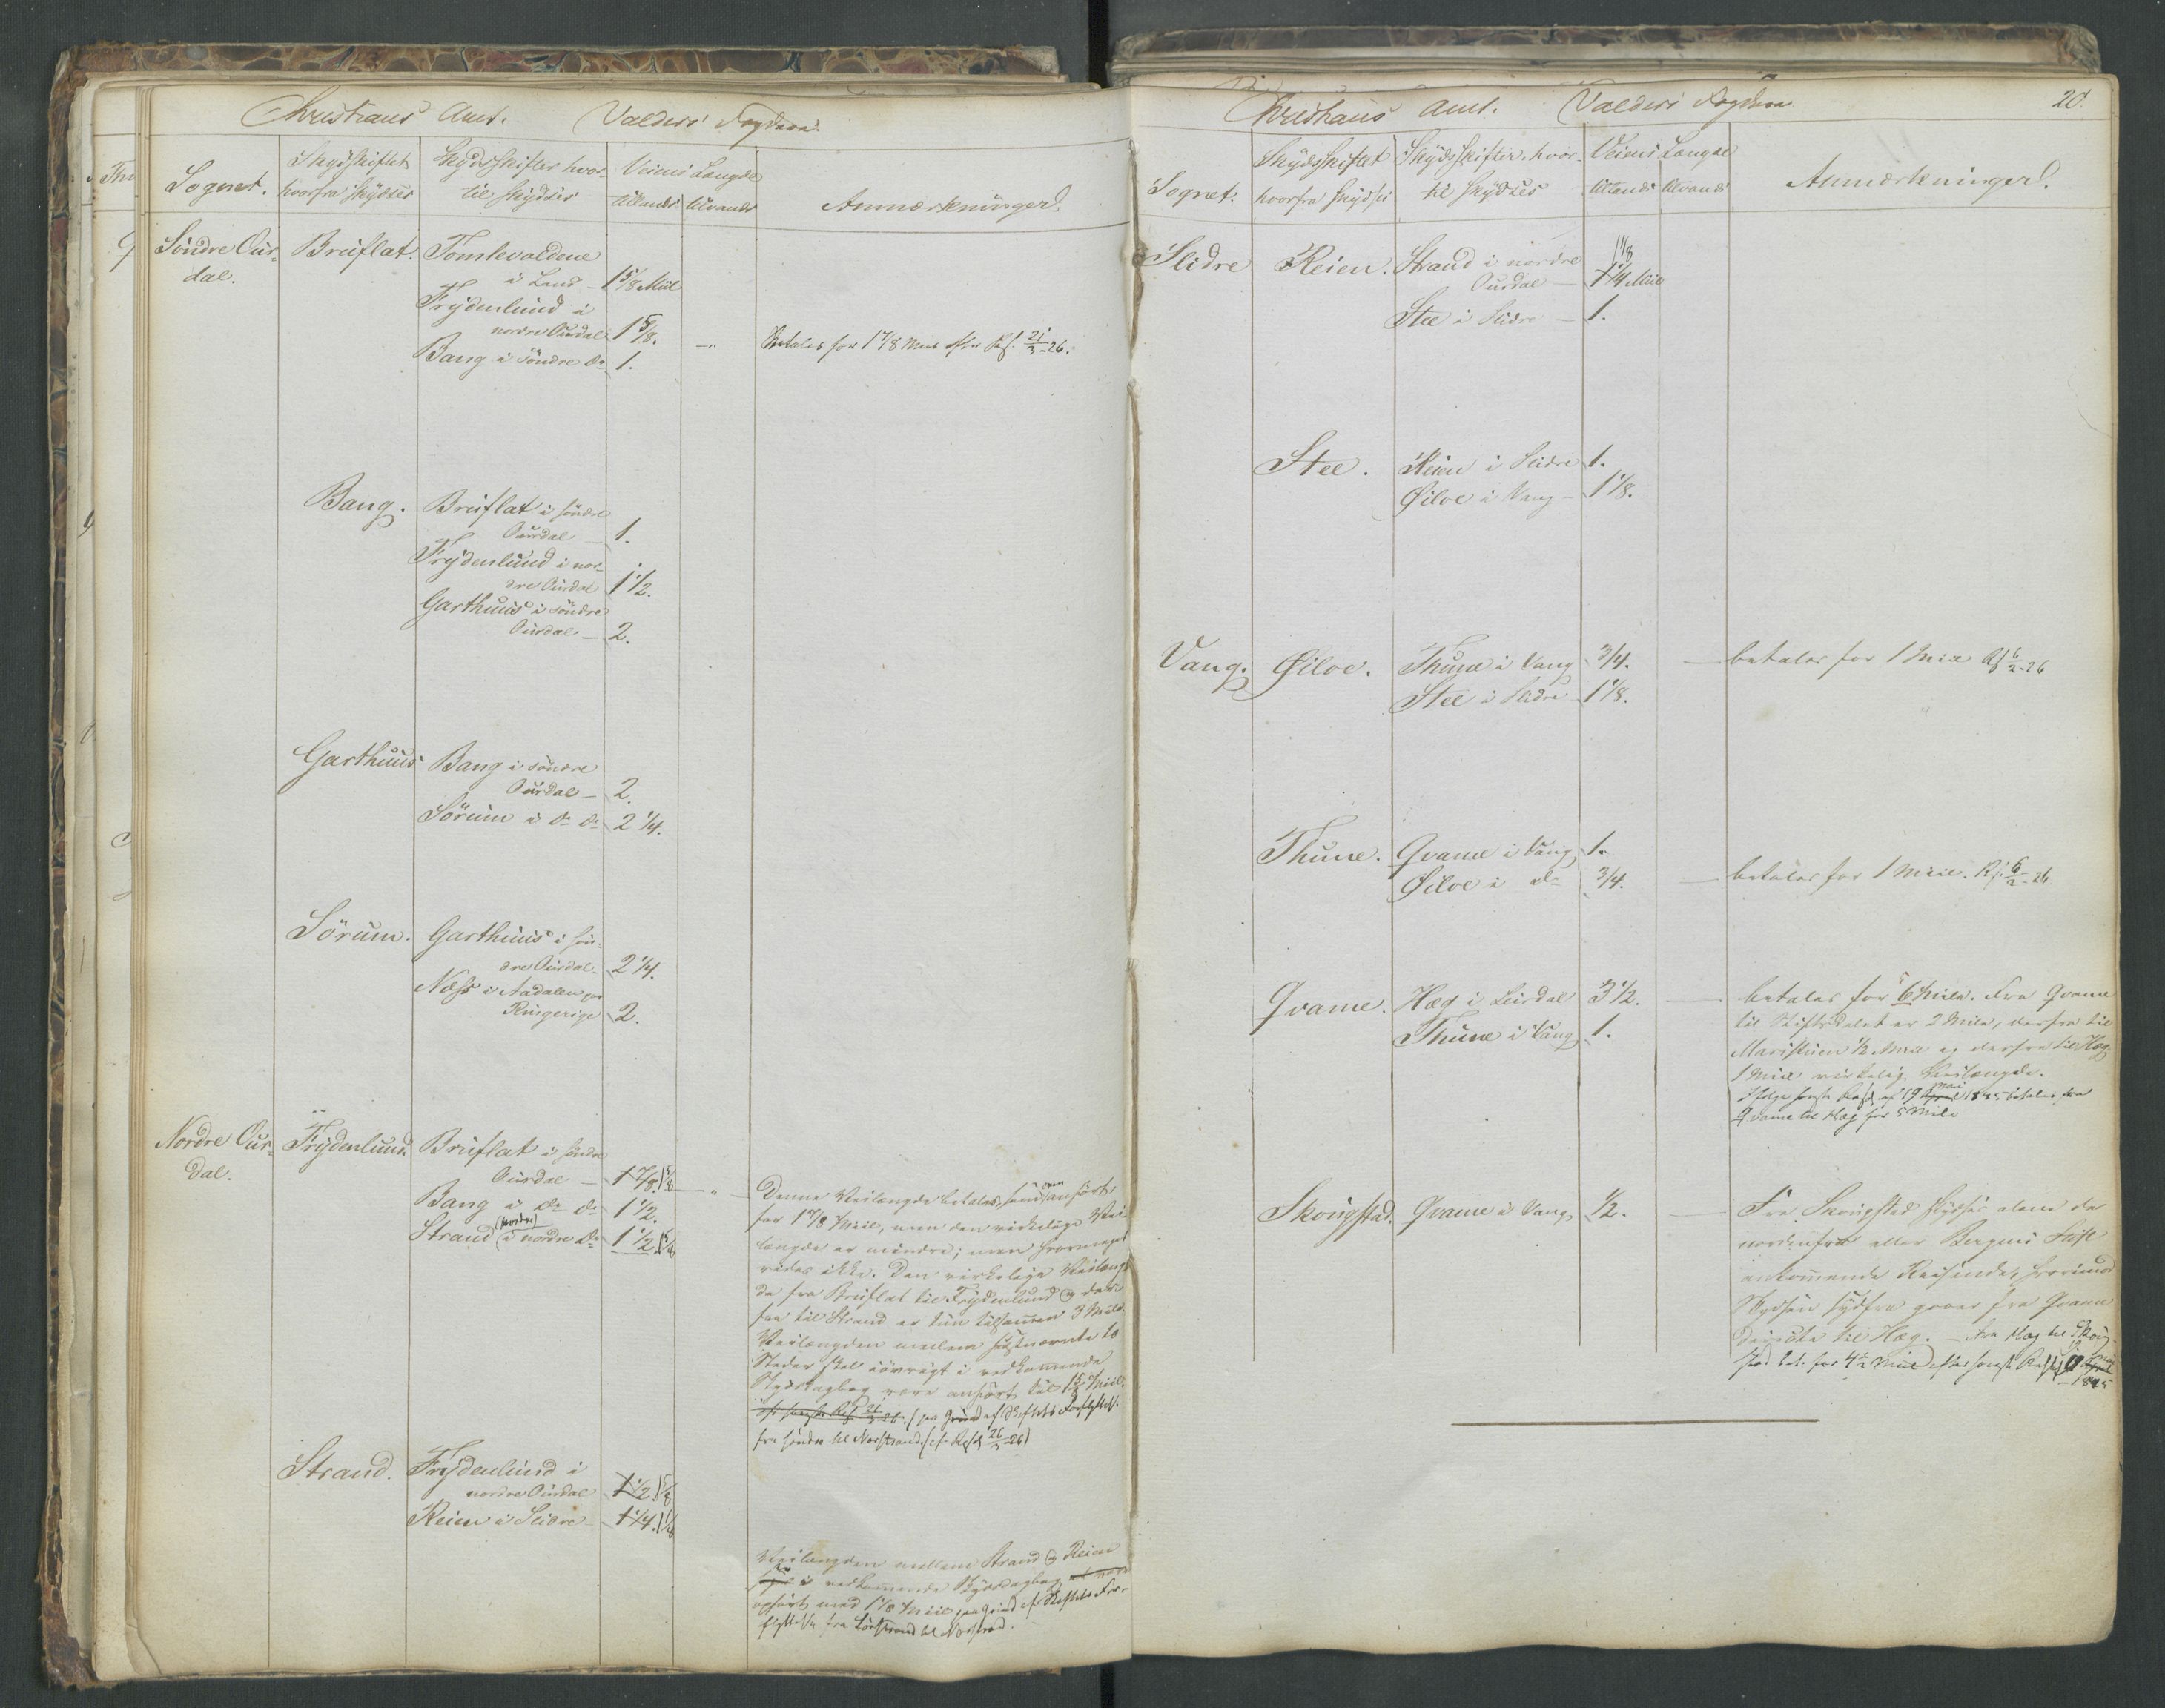 Christians Amt. Valders Fogderi.
Sognet. Skydsskiftet hvorfra skydses Skydsskifter hvortil skydses Veiens Længde tillands tilvands Anmærkninger.
Søndre Ourdal. Bruflat. Tomlevoldene
i Land - 1 5/8 Miil
Frydenlund i
nordre Ourdal 1 5/8. - " Betales for 1 7/8 Miil efter Rs. 21/3-26.
Bang i søndre do 1.
Bang. Bruflat i søndre
Ourdal - 1.
Frydenlund i nor-
dre Ourdal 1 1/2.
Garthuus i søndre
Ourdal - 2.
Garthuus Bang i søndre
Ourdal - 2.
Sörum i do do 2 1/4.
Sörum. Garthuus i søn-
dre Ourdal - 2 1/4.
Næss i Aadalen paa
Ringerige 2.
Nordre Our-
dal. Frydenlund. Bruflat i søndre
Ourdal - 1 7/8. 1 5/8 - " - Denne Veilængde betales, som oven anført,
Bang i do do 1 1/2. for 1 7/8 Miil, men den virkelige Vei-
Strand (nordre) i nordre do 1 1/2. 1 5/8 længde er mindre; men hvormeget
vides ikke. Den virkelige Veilæng-
de fra Bruflat til Frydenlund og der-
fra til Strand er kun tilsammen 3 Mile.
Veilængden mellem sidstnævnte to
Steder skal iøvrigt i vedkommende
Skydsdagbog være anført til 1 5/8 Miil.
21/3 26. paa Grund af Skiftets Forflyttelse
fra søndre til Nordstrand. (cf. Rs. 26/3-26)
Strand. Frydenlund i
nordre Ourdal 1 1/2. 1 5/8
Reien i Slidre 1 1/4. 1 1/8
Veilængden mellem Strand og Reien
i vedkommende Skydsdagbog
opført med 1 1/8 Miil paa Grund af Skiftets For-
flyttelse fra Sørstrand til Nordstrand.
Christians Amt. Valders Fogderi. 20.
Sognet. Skydsskiftet hvorfra skydses Skydsskifter hvortil skydses Veiens Længde tillands tilvands Anmærkninger.
Slidre Reien. Strand i nordre 1 1/8
Ourdal - 1 1/4 Miil
Stee i Slidre - 1.
Stee. Reien i Slidre 1.
Øiloe i Vang - 1 1/8.
Vang. Øiloe. Thune i Vang 3/4. - betales for 1 Miil Rs 6/2-26
Stee i Slidre 1 1/8.
Thune. Qvame i Vang 1.
Øiloe i do 3/4. - betales for 1 Miil. Rs. 6/2-26
Qvame. Hæg i Leirdal 3 1/2. - betales for 6 Mile. Fra Qvame
Thune i Vang 1. til Skiftesdelet er 2 Mile, derfra til
Maristuen 1/2 Miil og derfra til Hæg
1 Miil virkelig Veilængde.
Ifølge Resl. af 19 April Mai 1845 betales fra
Qvame til Hæg for 5 Mile
Skougstad. Qvame i Vang 1/2. - Fra Skougstad skydses alene de
nordenfra eller Bergens Stift
ankommende Reisende, hvorimod
Skydsen sydfra gaaer fra Qvame
directe til Hæg. - Fra Hæg til Skoug-
stad bet. for 4 1/2 Miil efter Resl. 19 April Mai
1845